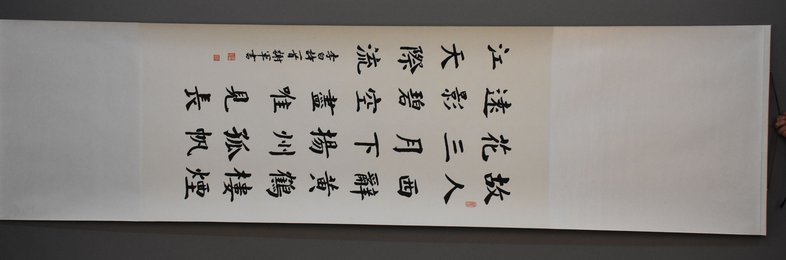 故人西辭黃鶴樓煙
花三月下揚州孤帆
遠影碧空盡唯見長
江天際流
李白詩一首 謝軍書